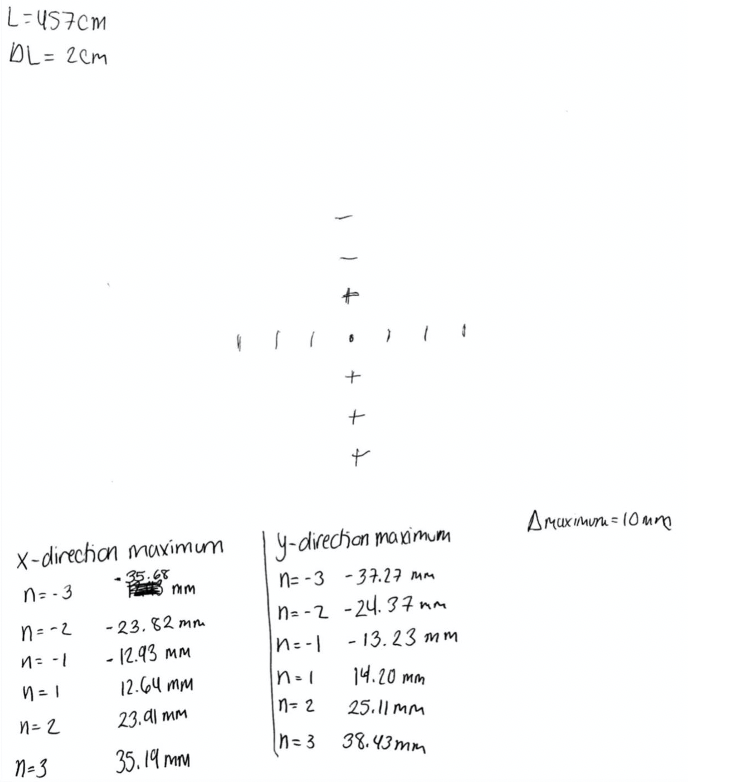 L=457cm
DL= 2cm
Δmaximum=10mm
x-direction maximum
n=-3 -35.68 mm
n=-2 -23.82 mm
n=-1 -12.93 mm
n=1 12.64 mm
n=2 23.91 mm
n=3 35.19 mm
y-direction maximum
n=-3 -37.27 mm
n=-2 -24.37 mm
n=-1 -13.23 mm
n=1 14.20 mm
n=2 25.11 mm
n=3 38.43mm